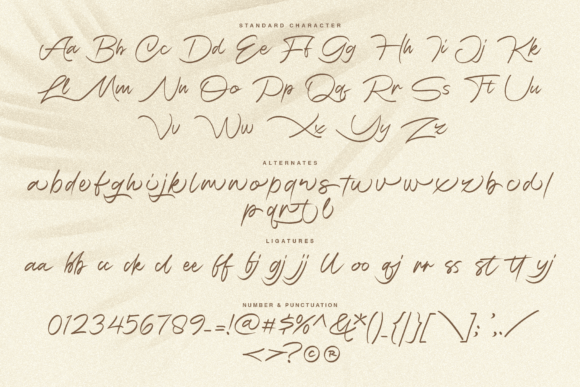 STANDARD CHARACTER
Aa Bb Cc Dd Ee Ff Gg Hh Ii Jj Kk
Ll Mm Nn Oo Pp Qq Rr Ss Tt Uu
Vv Ww Xx Yy Zz
ALTERNATES
a b d e f g h i j k l m n o p q r s t u v w x z b c d l
p q r t l
LIGATURES
aa bb cc ck cl ee ff fj gj jj ll oo qj rr ss st tt yj
NUMBER & PUNCTUATION
0123456789-=!@#$%^&*()_{|}[\]; ',./
<>?©®